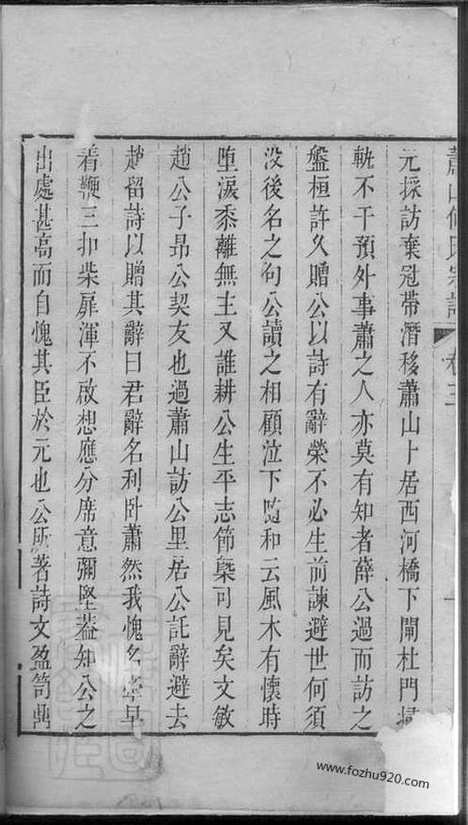 蕭山何氏宗譜
卷三
元採訪棄冠帶潛移蕭山卜居西河橋下閉杜門掃
軌不干預外事蕭之人亦莫有知者薛公過而訪之
盤桓許久贈公以詩有辭榮不必生前諫避世何須
没後名之句公讀之相顧泣下隨和云風木有懷時
墮淚黍離無主又誰耕公生平志節槩可見矣文敏
趙公子昂公契友也過蕭山訪公里居公託辭避去
趙留詩以贈其辭曰君辭名利卧蕭然我愧名牽早
着鞭三扣柴扉渾不啟想應分席意彌堅葢知公之
出處甚高而自愧其臣於元也公所著詩文盈笥
www.fozhu920.com